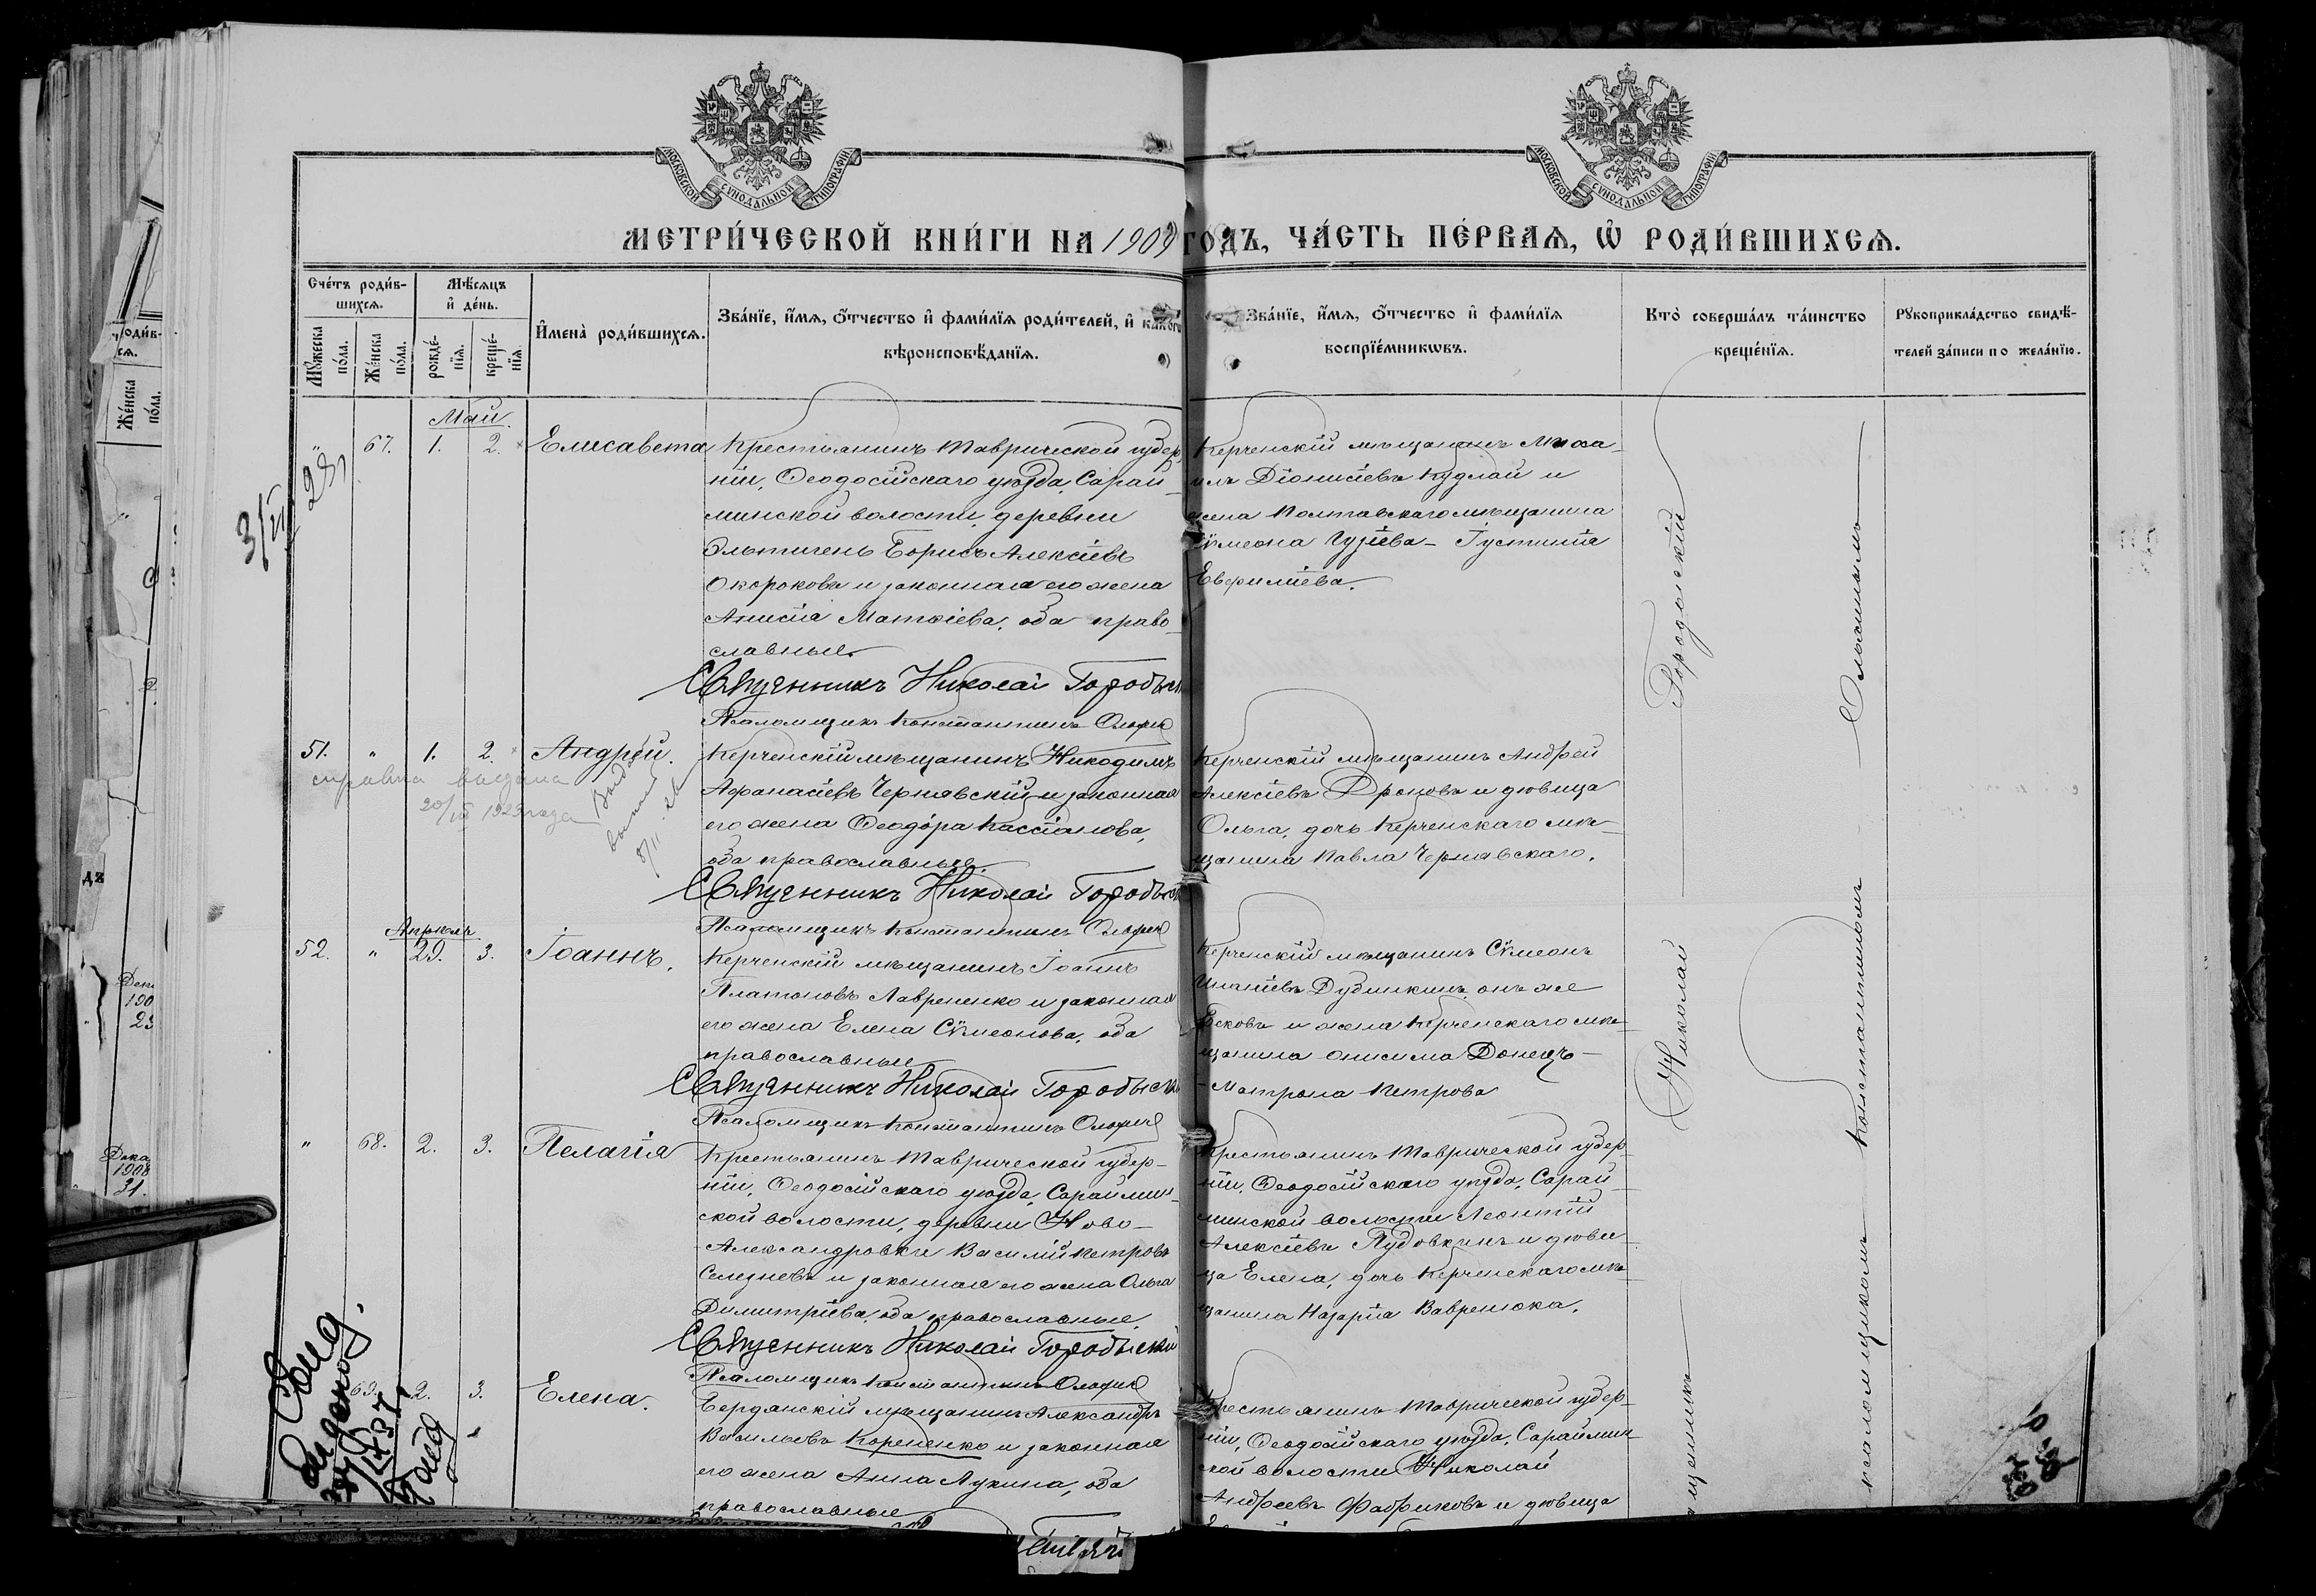 МОСКОВСКОЙ СѴНОДАЛЬНОЙ ТИПОГРАФІИ
МОСКОВСКОЙ СѴНОДАЛЬНОЙ ТИПОГРАФІИ
МЕТРИ́ЧЕСКОЙ КНИ́ГИ НА 1909 ГОДЪ, ЧА́СТЬ ПЕ́РВАѦ, Ѡ РОДИ́ВШИХСѦ.
Сче́тъ роди́в-
шихсѧ.
Мѣ́сѧцъ
и҆ де́нь.
Мꙋ́жеска по́ла.
Же́нска по́ла.
рожде́-
нїѧ.
креще́-
нїѧ.
И҆мена̀ роди́вшихсѧ.
Зва́нїе, и҆́мѧ, ѻ҆́тчество и҆ фами́лїѧ роди́телей, и҆ како́гѡ
вѣроисповѣ́данїѧ.
Зва́нїе, и҆́мѧ, ѻ҆́тчество и҆ фами́лїѧ
воспрїе́мникѡвъ.
Кто̀ соверша́лъ та́инство
креще́нїѧ.
Рꙋкоприкла́дство свидѣ́-
телей за́писи по жела́нїю.
Май.
" 67. 1. 2. Елисавета
Крестьянинъ Таврической губер
ніи, Ѳеодосійскаго уѣзда, Сарай
минской волости, деревни
Эльтигень Борисъ Алексіевъ
Окороковъ и законная его жена
Анисія Матѳіева, оба право-
славные.
Священникъ Николай Городыск
Псаломщикъ Константинъ
Керченскій мѣщанинъ Миха-
илъ Діонисіевъ Кудлай и
жена Полтавскаго мѣщанина
Сѵмеона Гузіева - Іустинія
Евфиміева.
51. " 1. 2. Андрей.
справка выдана
1923 года
Керченскій мѣщанинъ Никодимъ
Аѳанасіевъ Чернявскій и законная
его жена Ѳеодора Кассіанова,
оба православные.
Священникъ Николай Городыск
Псаломщикъ Константинъ
Керченскій мѣщанинъ Андрей
Алексіевъ Дроновъ и дѣвица
Ольга, дочь Керченскаго мѣ-
щанина Павла Чернявскаго.
Апрѣль
52. " 29. 3. Іоаннъ.
Керченскій мѣщанинъ Іоаннъ
Платоновъ Лавриненко и законная
его жена Елена Сѵмеонова, оба
православные
Священникъ Николай Городыск
Псаломщикъ Константинъ
Керченскій мѣщанинъ Сѵмеонъ
Дубинкинъ, онъ же
Есковъ и жена Керченскаго мѣ-
щанина Онисима Донецъ -
- Матрона Петрова
" 68. 2. 3. Пелагія
Крестьянинъ Таврической губер-
ніи, Ѳеодосійскаго уѣзда, Сараймин-
ской волости, деревни Ново-
Александровки Василій Петровъ
Селезневъ и законная его жена Ольга
Димитріева, оба православные.
Священникъ Николай Городыскій
Псаломщикъ Константинъ
Крестьянинъ Таврической губер-
ніи, Ѳеодосійскаго уѣзда, Сарай
минской волости Леонтій
Алексіевъ Пудовкинъ и дѣви-
ца Елена, дочь Керченскаго мѣ-
щанина Назарія Вавренюка.
69. 2. 3. Елена.
Бердянскій мѣщанинъ Александръ
Васильевъ Корененко и законная
его жена Анна Лукина, оба
православные
Крестьянинъ Таврической губер-
ніи, Ѳеодосійскаго уѣзда, Сараймин-
ской волости Николай
Андреевъ Фабриковъ и дѣвица
щенникъ Николай Городыскій
псаломщикомъ Константиномъ